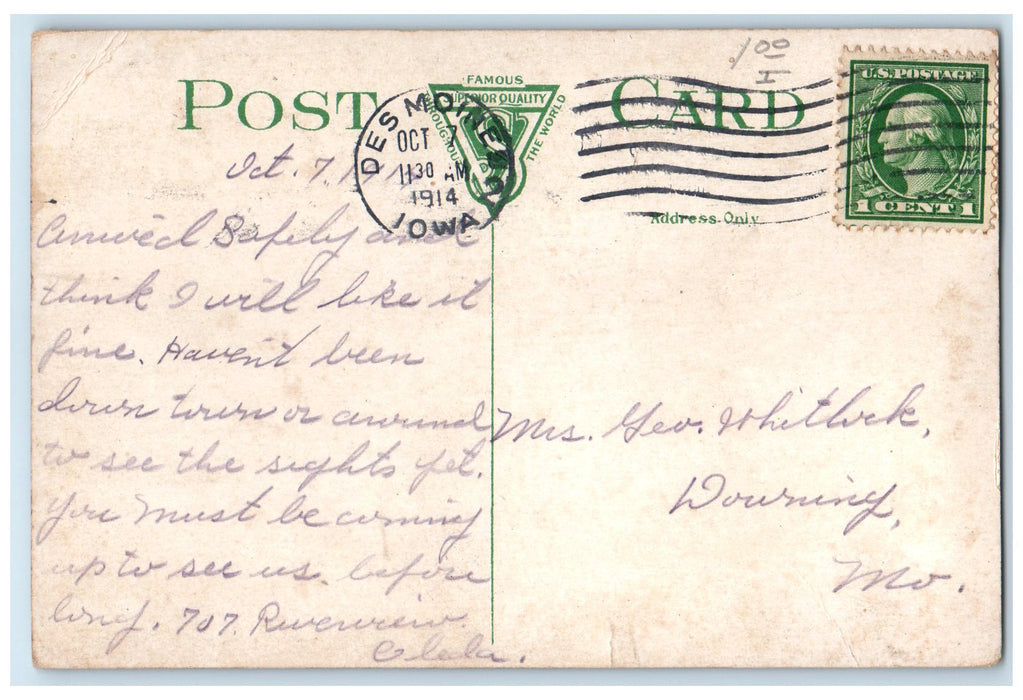 POST CARD
FAMOUS
SUPERIOR QUALITY
THROUGHOUT
THE WORLD
DES MOINES
OCT 7
11 30 AM
1914
IOWA
U.S. POSTAGE
1 CENT 1
Address Only
1 00
I
Oct. 7, 19
Arrived Safely and
think I will like it
fine. Haven't been
down town or around
to see the sights yet.
You must be coming
up to see us before
long. 707 Riverview.
Mrs. Geo. Whitlock,
Downing,
Mo.